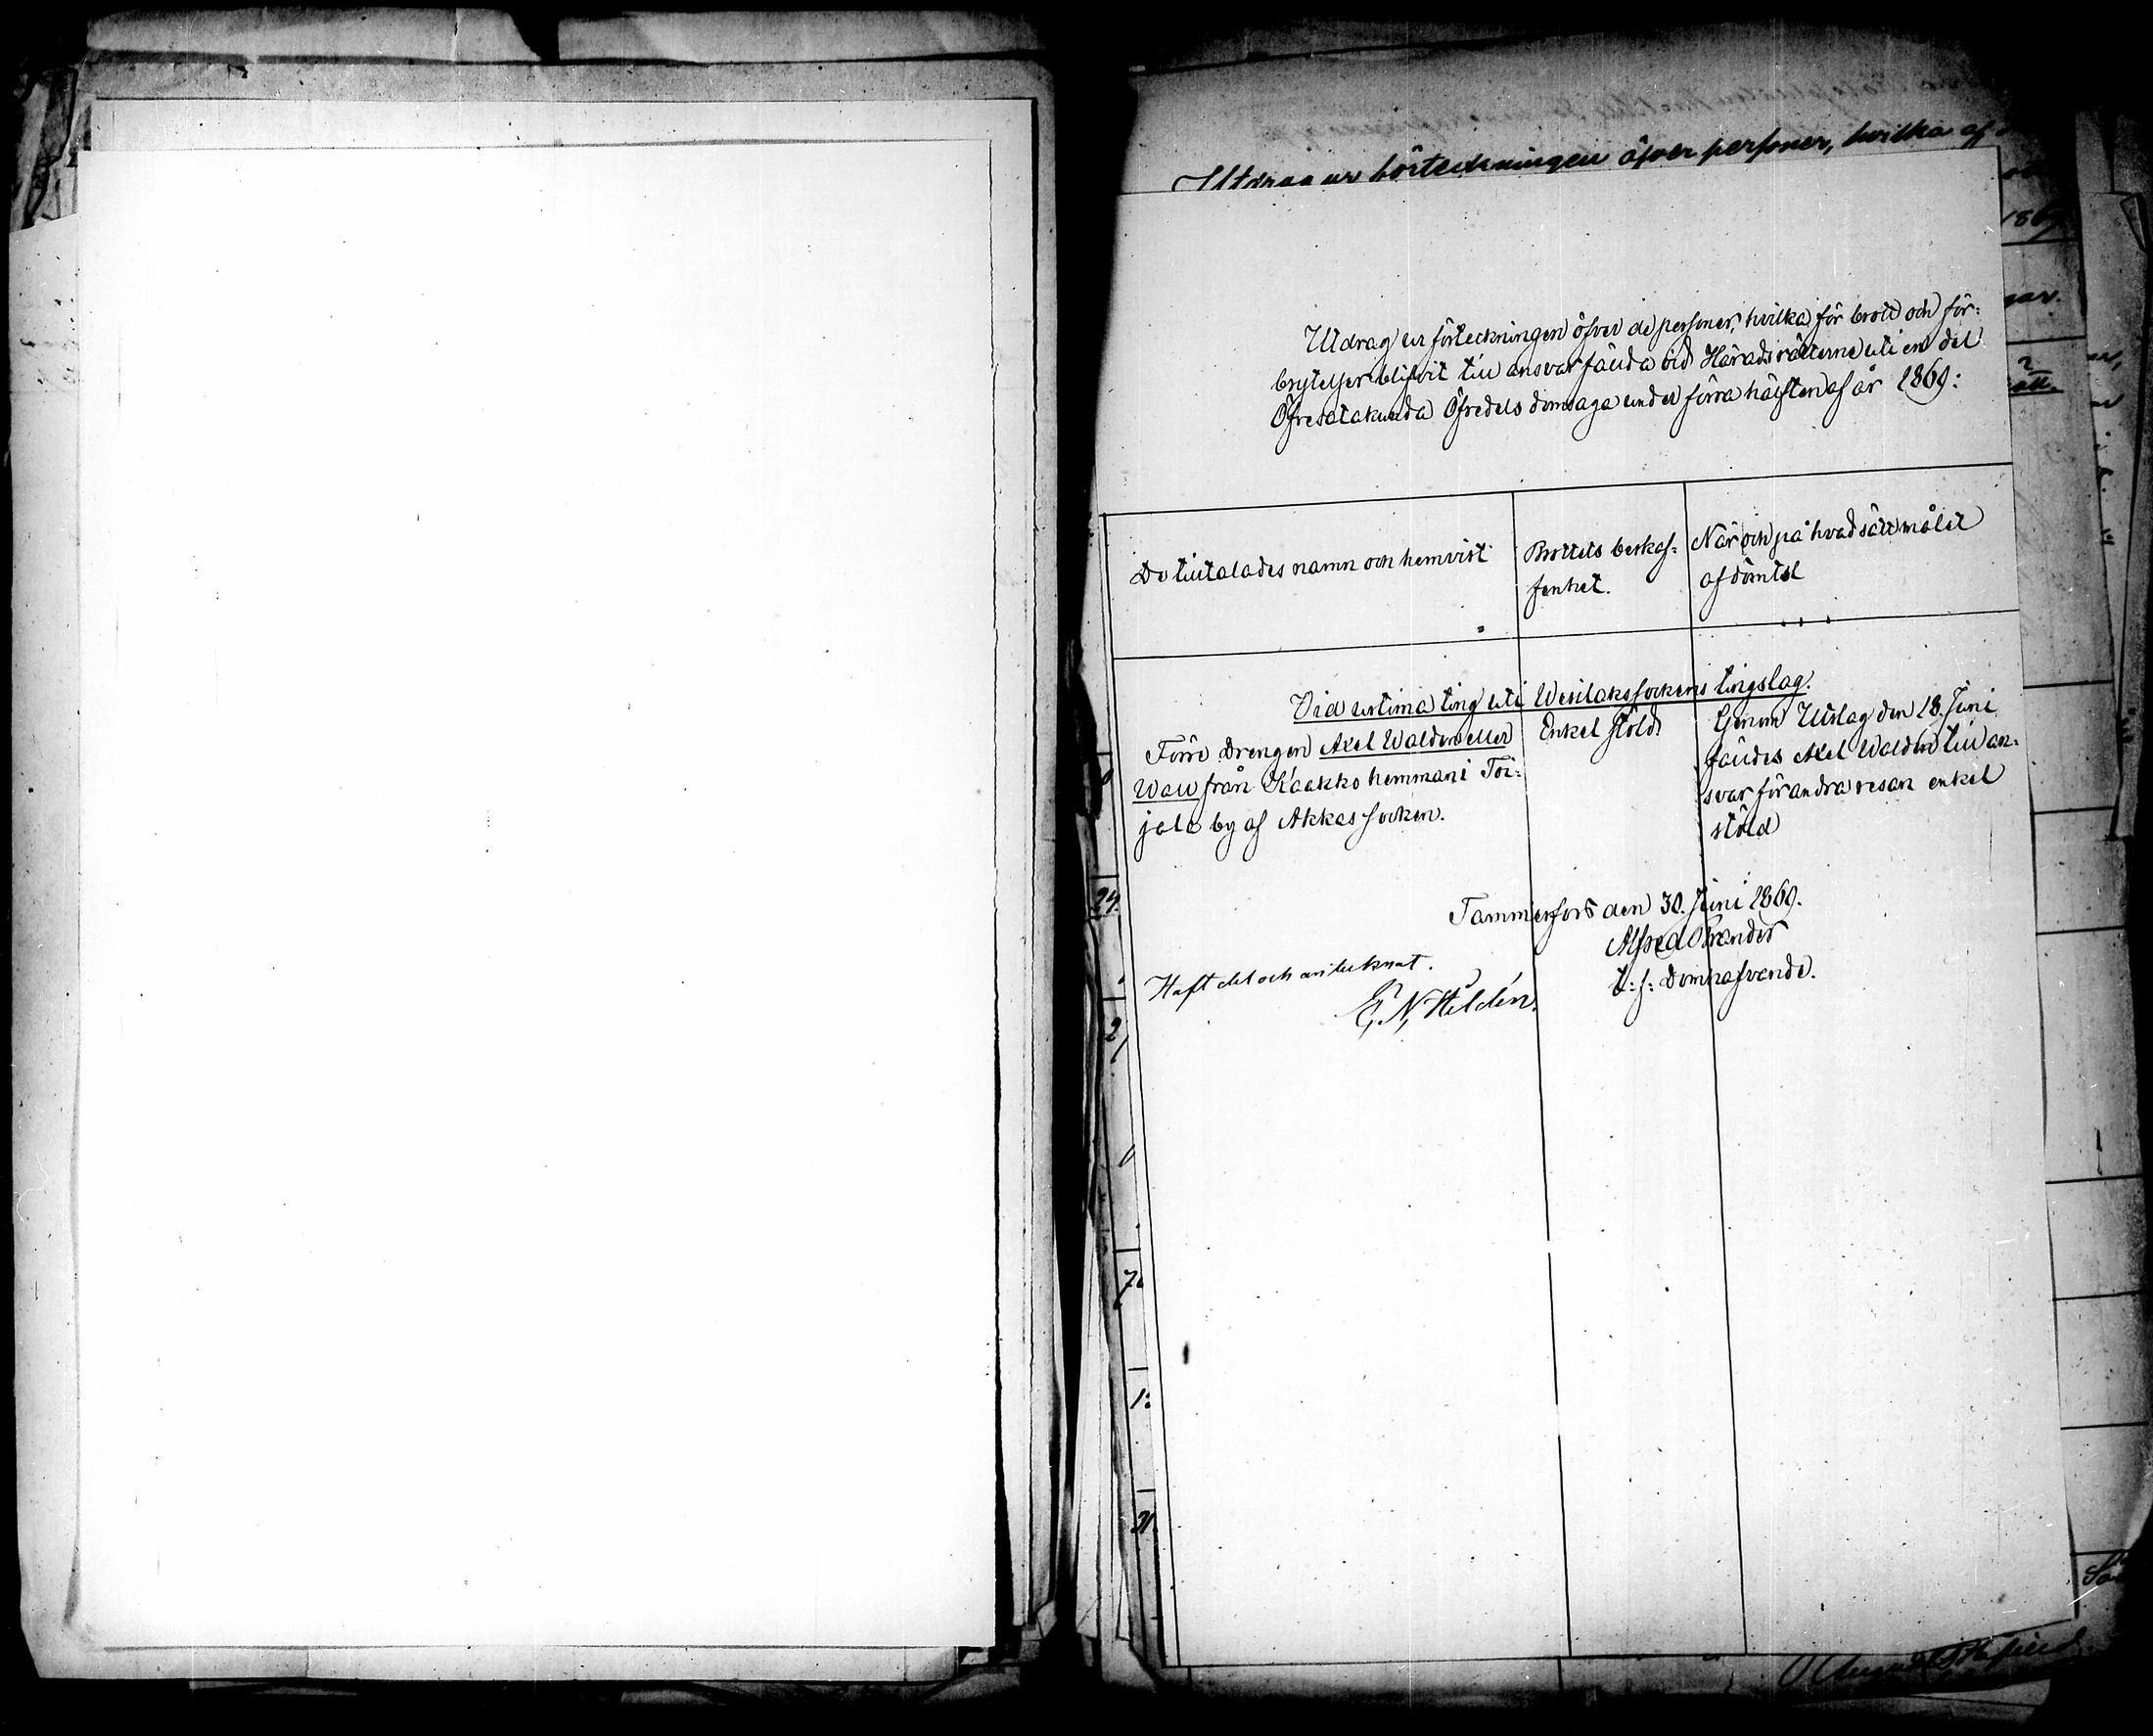 Utdrag ur förteckningen öfver personer, hvilka af
1869
Utdrag ur förteckningen öfver de personer, hvilka för brott och för-
brytelser blifvit till ansvar fällda vid Häradsrätterne uti en del
Öfresatakunda Öfredels domsaga under förra hälften af år 1869:
De tilltalades namn och hemvist
Brottets beskaf-
fenhet.
När och på hvad sätt målet
afdömtst
Vid urtima ting uti Wesilaks sockens tingslag.
Förre Drengen Axel Waldén eller
Wall från Kaakko hemman i Toi-
jala by af Akkas socken.
Enkel stöld
Genom Utslag den 18. Juni
fälldes Axel Waldén till an-
svar för andra resan enkel
stöld
Tammerfors den 30. Juni 1869.
Alfred
t: f: Domhafvande.
Haft del och antecknat.
E, N, Heldén.
24.
2
7
1
21